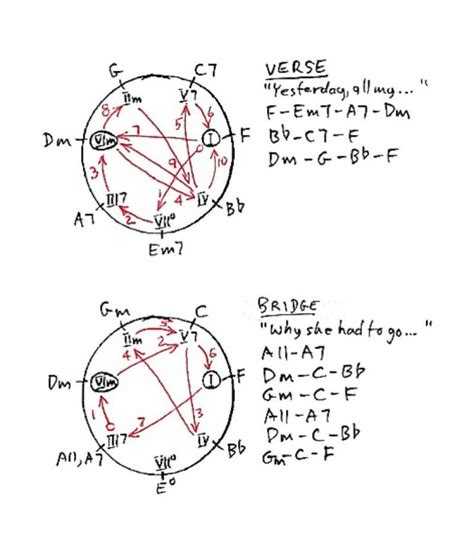 VERSE
"Yesterday, all my..."
F-Em7-A7-Dm
Bb-C7-F
Dm-G-Bb-F
G C7
IIm V7
8 5 6
Dm VIm 7 I F
3 9 10
1 4
A7 III7 2 IV Bb
VII°
Em7
BRIDGE
"Why she had to go..."
A11-A7
Dm-C-Bb
Gm-C-F
A11-A7
Dm-C-Bb
Gm-C-F
Gm C
IIm 5 V7
4 2 6
Dm VIm I F
1 7 3
A11, A7 III7 IV Bb
VII°
E°